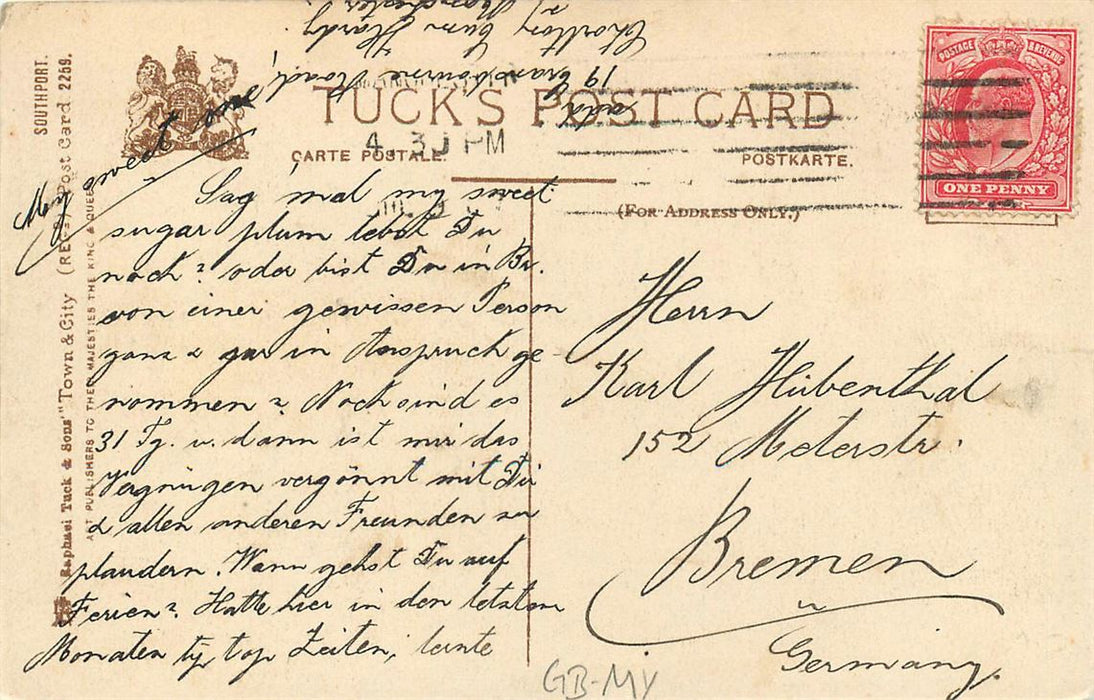 SOUTHPORT.
Raphael Tuck & Sons' "Town & City" (REGD.) Post Card 2259.
ART PUBLISHERS TO THE MAJESTIES THE KING & QUEEN
TUCK'S POST CARD
CARTE POSTALE.
POSTKARTE.
(FOR ADDRESS ONLY.)
4.30 PM
POSTAGE & REVENUE
ONE PENNY
My sweet one
Sag 'mal my sweet
sugar plum lebst Du
noch? oder bist Du in Br.
von einer gewissen Person
ganz & gar in Anspruch ge-
nommen? Noch sind es
31 Tg. u. dann ist mir das
Vergnügen vergönnt mit Dir
& allen anderen Freunden zu
plaudern. Wann gehst Du auf
Ferien? Hatte hier in den letzten
Monaten tip top Zeiten, lernte
19 Cransbourne Road,
Chorlton Cum Hardy
Manchester
Herrn
Karl Hübenthal
152 Meterstr.
Bremen
Germany.
GB-MY